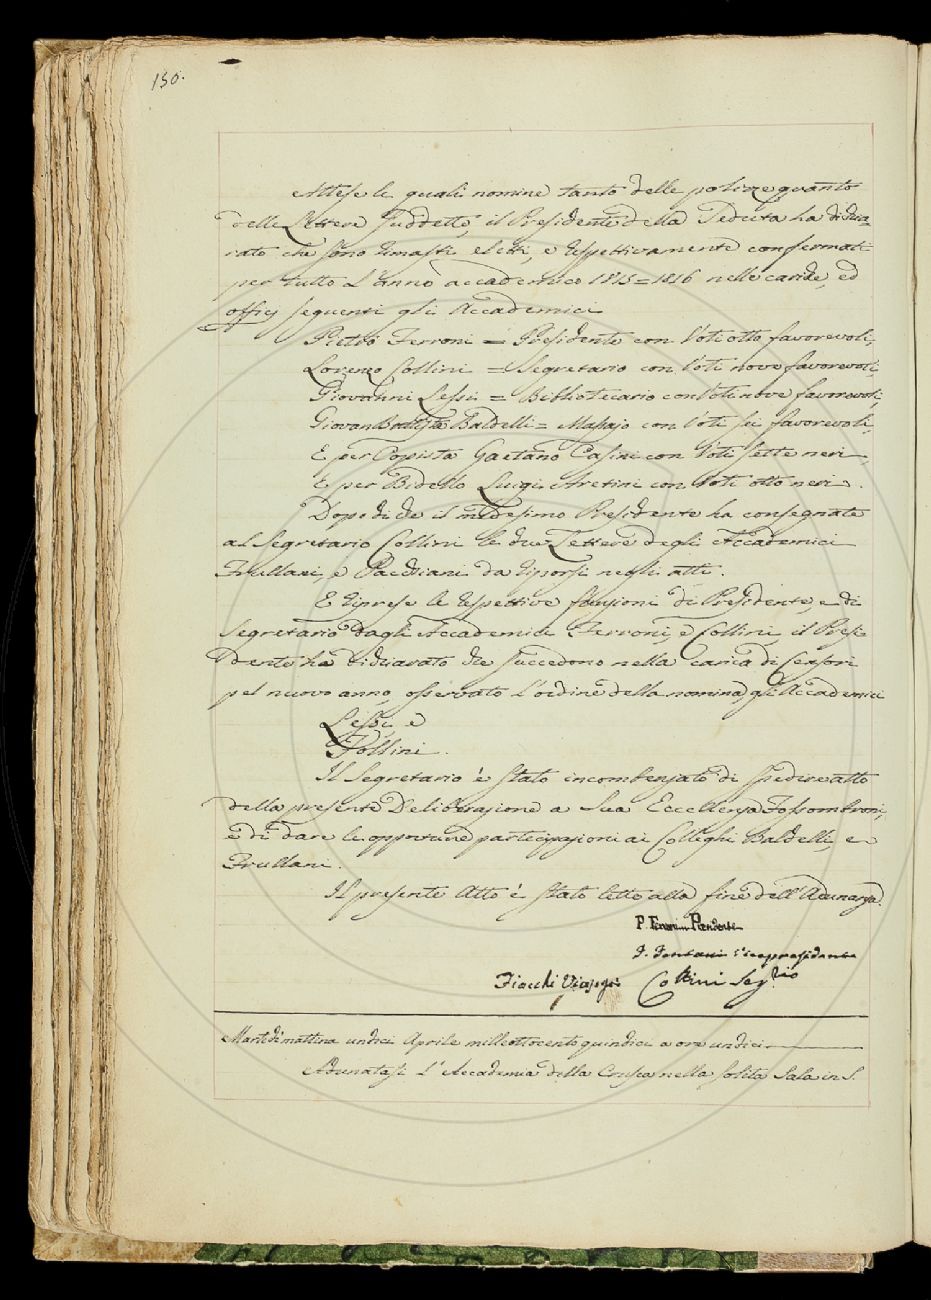 150.
Attese le quali nomine tanto delle polizze quanto
delle Lettere suddette, il Presidente della Seduta ha dichia=
rato che sono rimasti eletti, e respettivamente confermati
per tutto l'anno accademico 1815=1816 nelle cariche, ed
offizj seguenti gli Accademici
Pietro Ferroni = Presidente con Voti otto favorevoli,
Lorenzo Collini = Segretario con Voti nove favorevoli,
Giovanni Lessi = Bibliotecario con Voti nove favorevoli,
Giovan Battista Baldelli = Massajo con Voti sei favorevoli,
E per Copista Gaetano Casini con Voti sette neri,
E per Bidello Luigi Aretini con Voti otto neri.
Dopo di che il medesimo Presidente ha consegnate
al Segretario Collini le due Lettere degli Accademici
Frullani, e da riporsi negli atti.
E riprese le respettive funzioni di Presidente, e di
Segretario dagli Accademici Ferroni, e Collini, il Presi=
dente ha dichiarato che succedono nella carica di Censori
pel nuovo anno, osservato l'ordine della nomina, gli Accademici
Lessi e
Follini.
Il Segretario è stato incombenzato di spedire atto
della presente Deliberazione a Sua Eccellenza Fossombroni,
e di dare le opportune partecipazioni ai Colleghi Baldelli, e
Frullani.
Il presente Atto è stato letto alla fine dell'Adunanza.
P. Ferroni Presidente
F. Fontani Vicepresidente
Fiacchi Collini Seg.rio
Martedì mattina undici Aprile milleottocentoquindici a ore undici
Adunatasi l'Accademia della Crusca nella solita Sala in S.